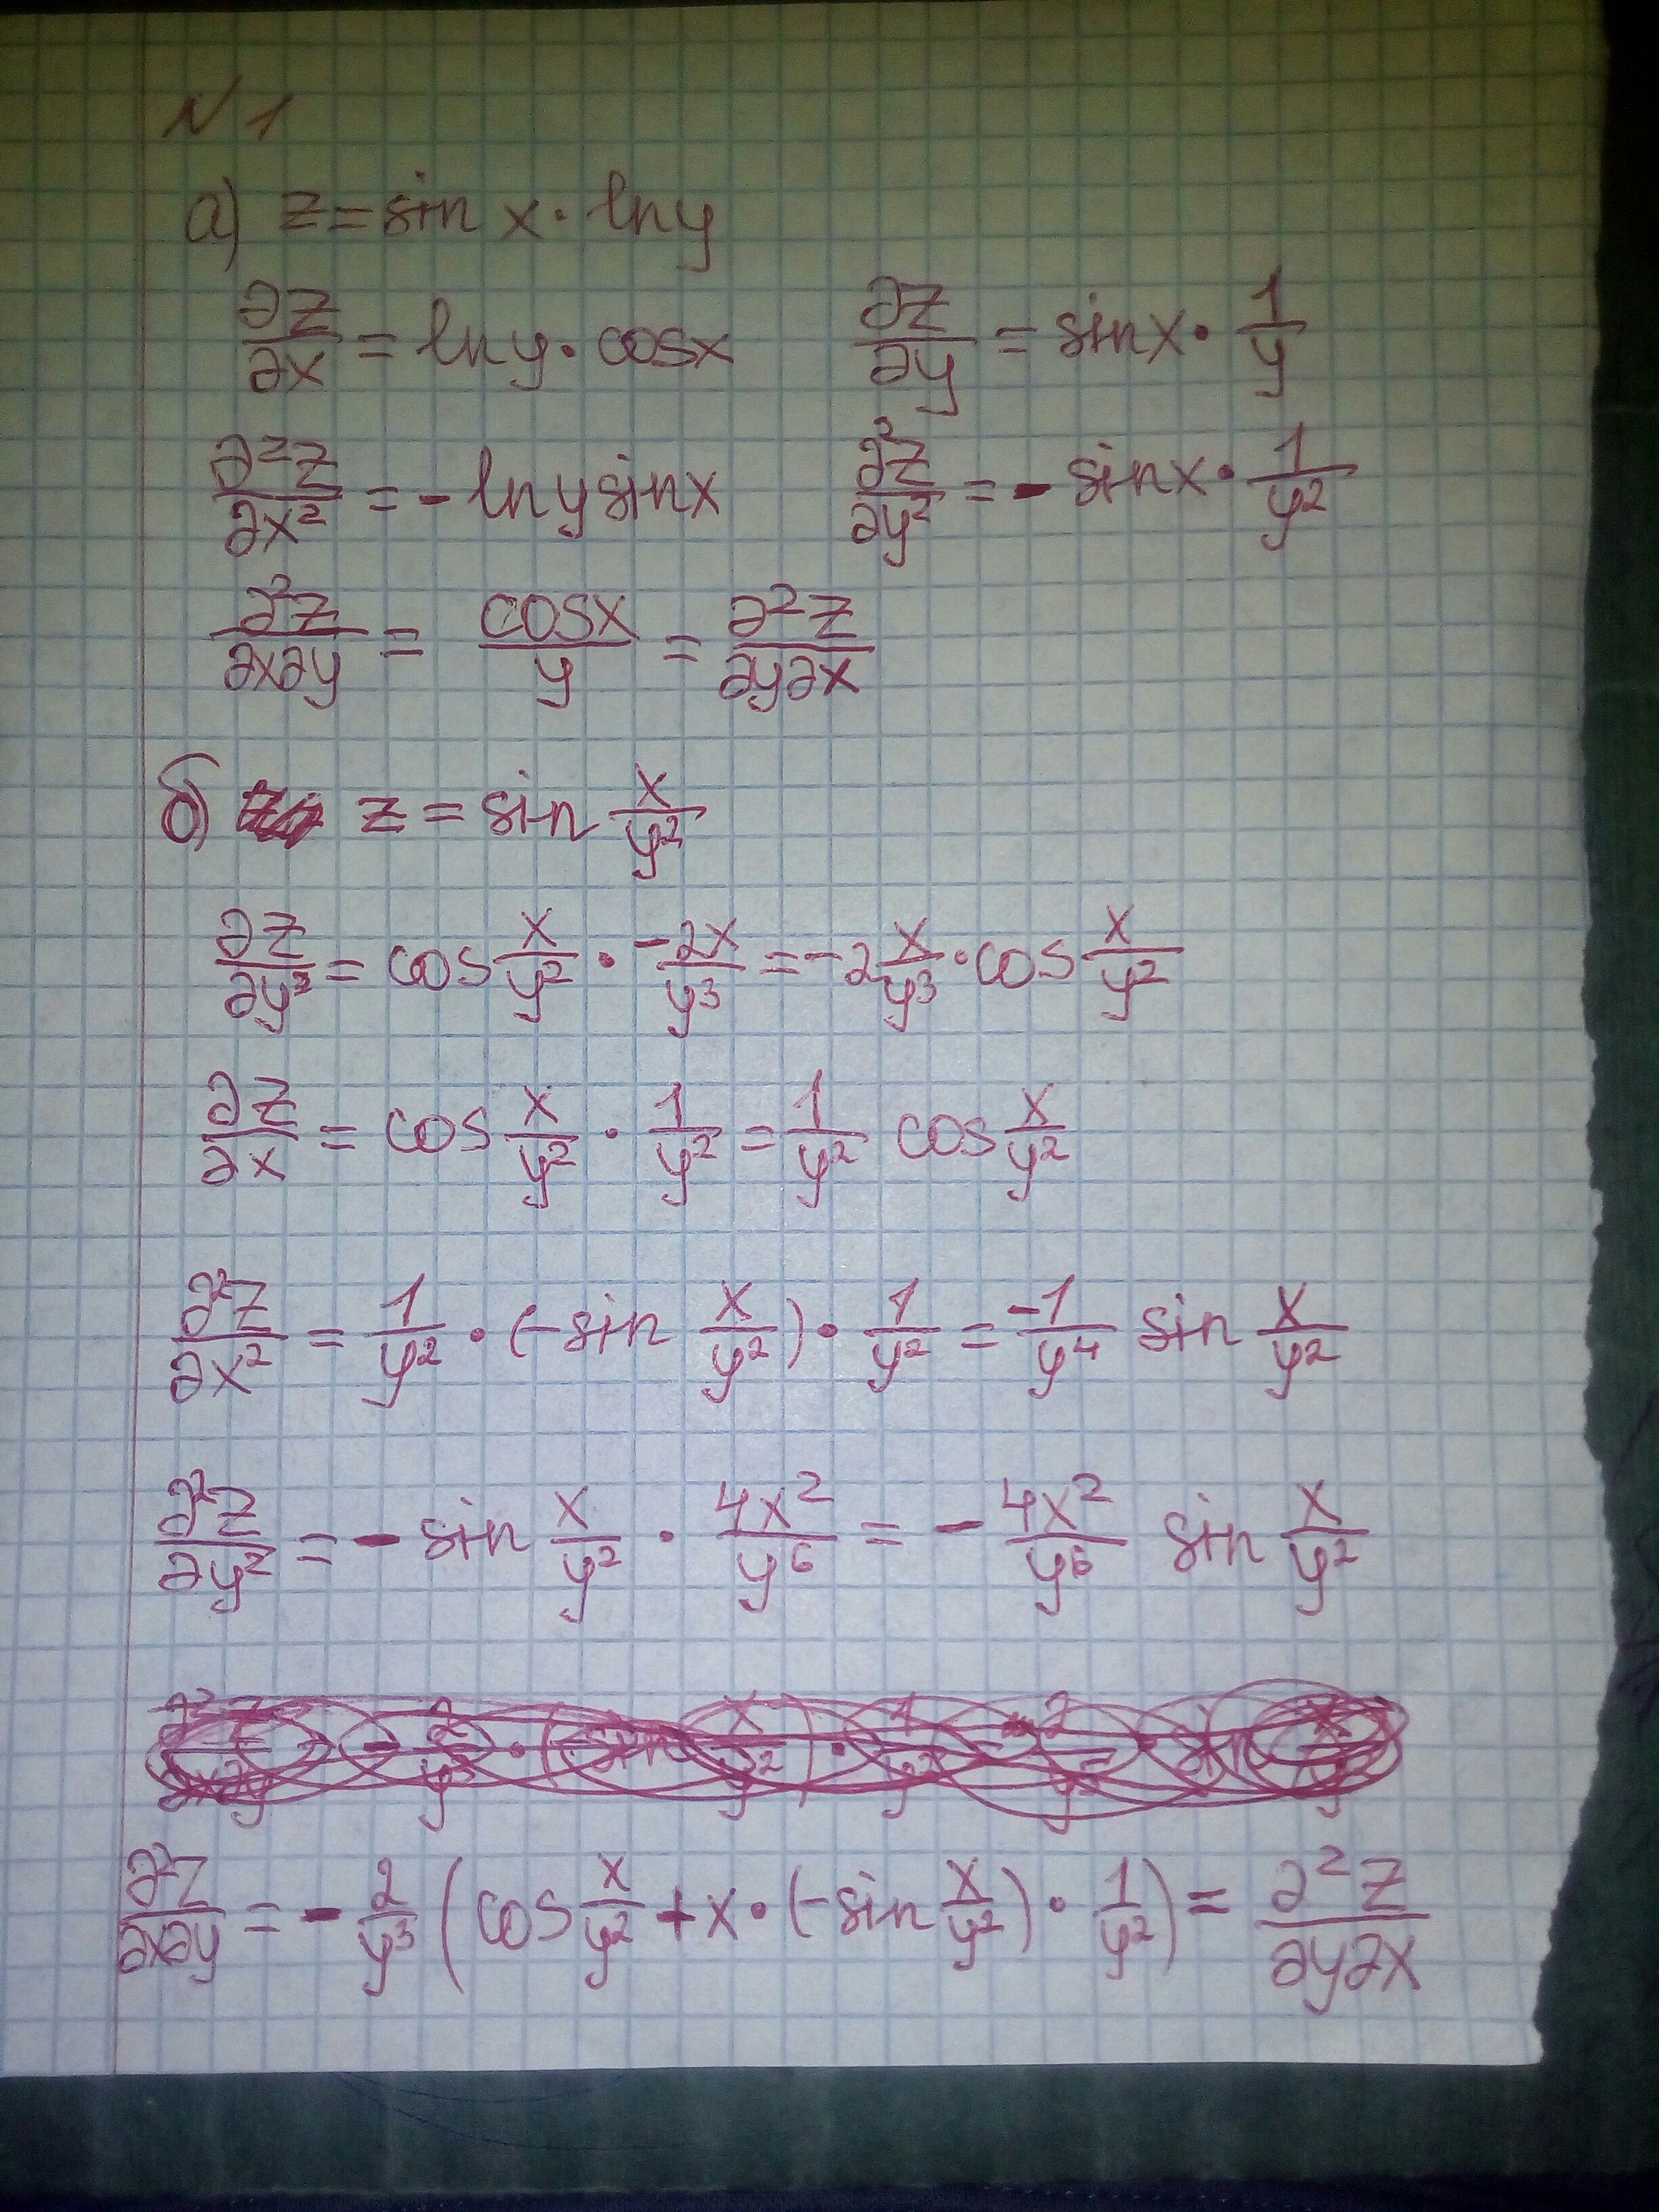 N1
а) z = sin x · ln y
∂z/∂x = ln y · cos x   ∂z/∂y = sin x · 1/y
∂²z/∂x² = - ln y sin x   ∂²z/∂y² = - sin x · 1/y²
∂²z/∂x∂y = cos x/y = ∂²z/∂y∂x
б) z = sin x/y²
∂z/∂y² = cos x/y² · -2x/y³ = -2 x/y³ · cos x/y²
∂z/∂x = cos x/y² · 1/y² = 1/y² cos x/y²
∂²z/∂x² = 1/y² · (-sin x/y²) · 1/y² = -1/y⁴ sin x/y²
∂²z/∂y² = - sin x/y² · 4x²/y⁶ = - 4x²/y⁶ sin x/y²
∂²z/∂x∂y = - 2/y³ (cos x/y² + x · (-sin x/y²) · 1/y²) = ∂²z/∂y∂x